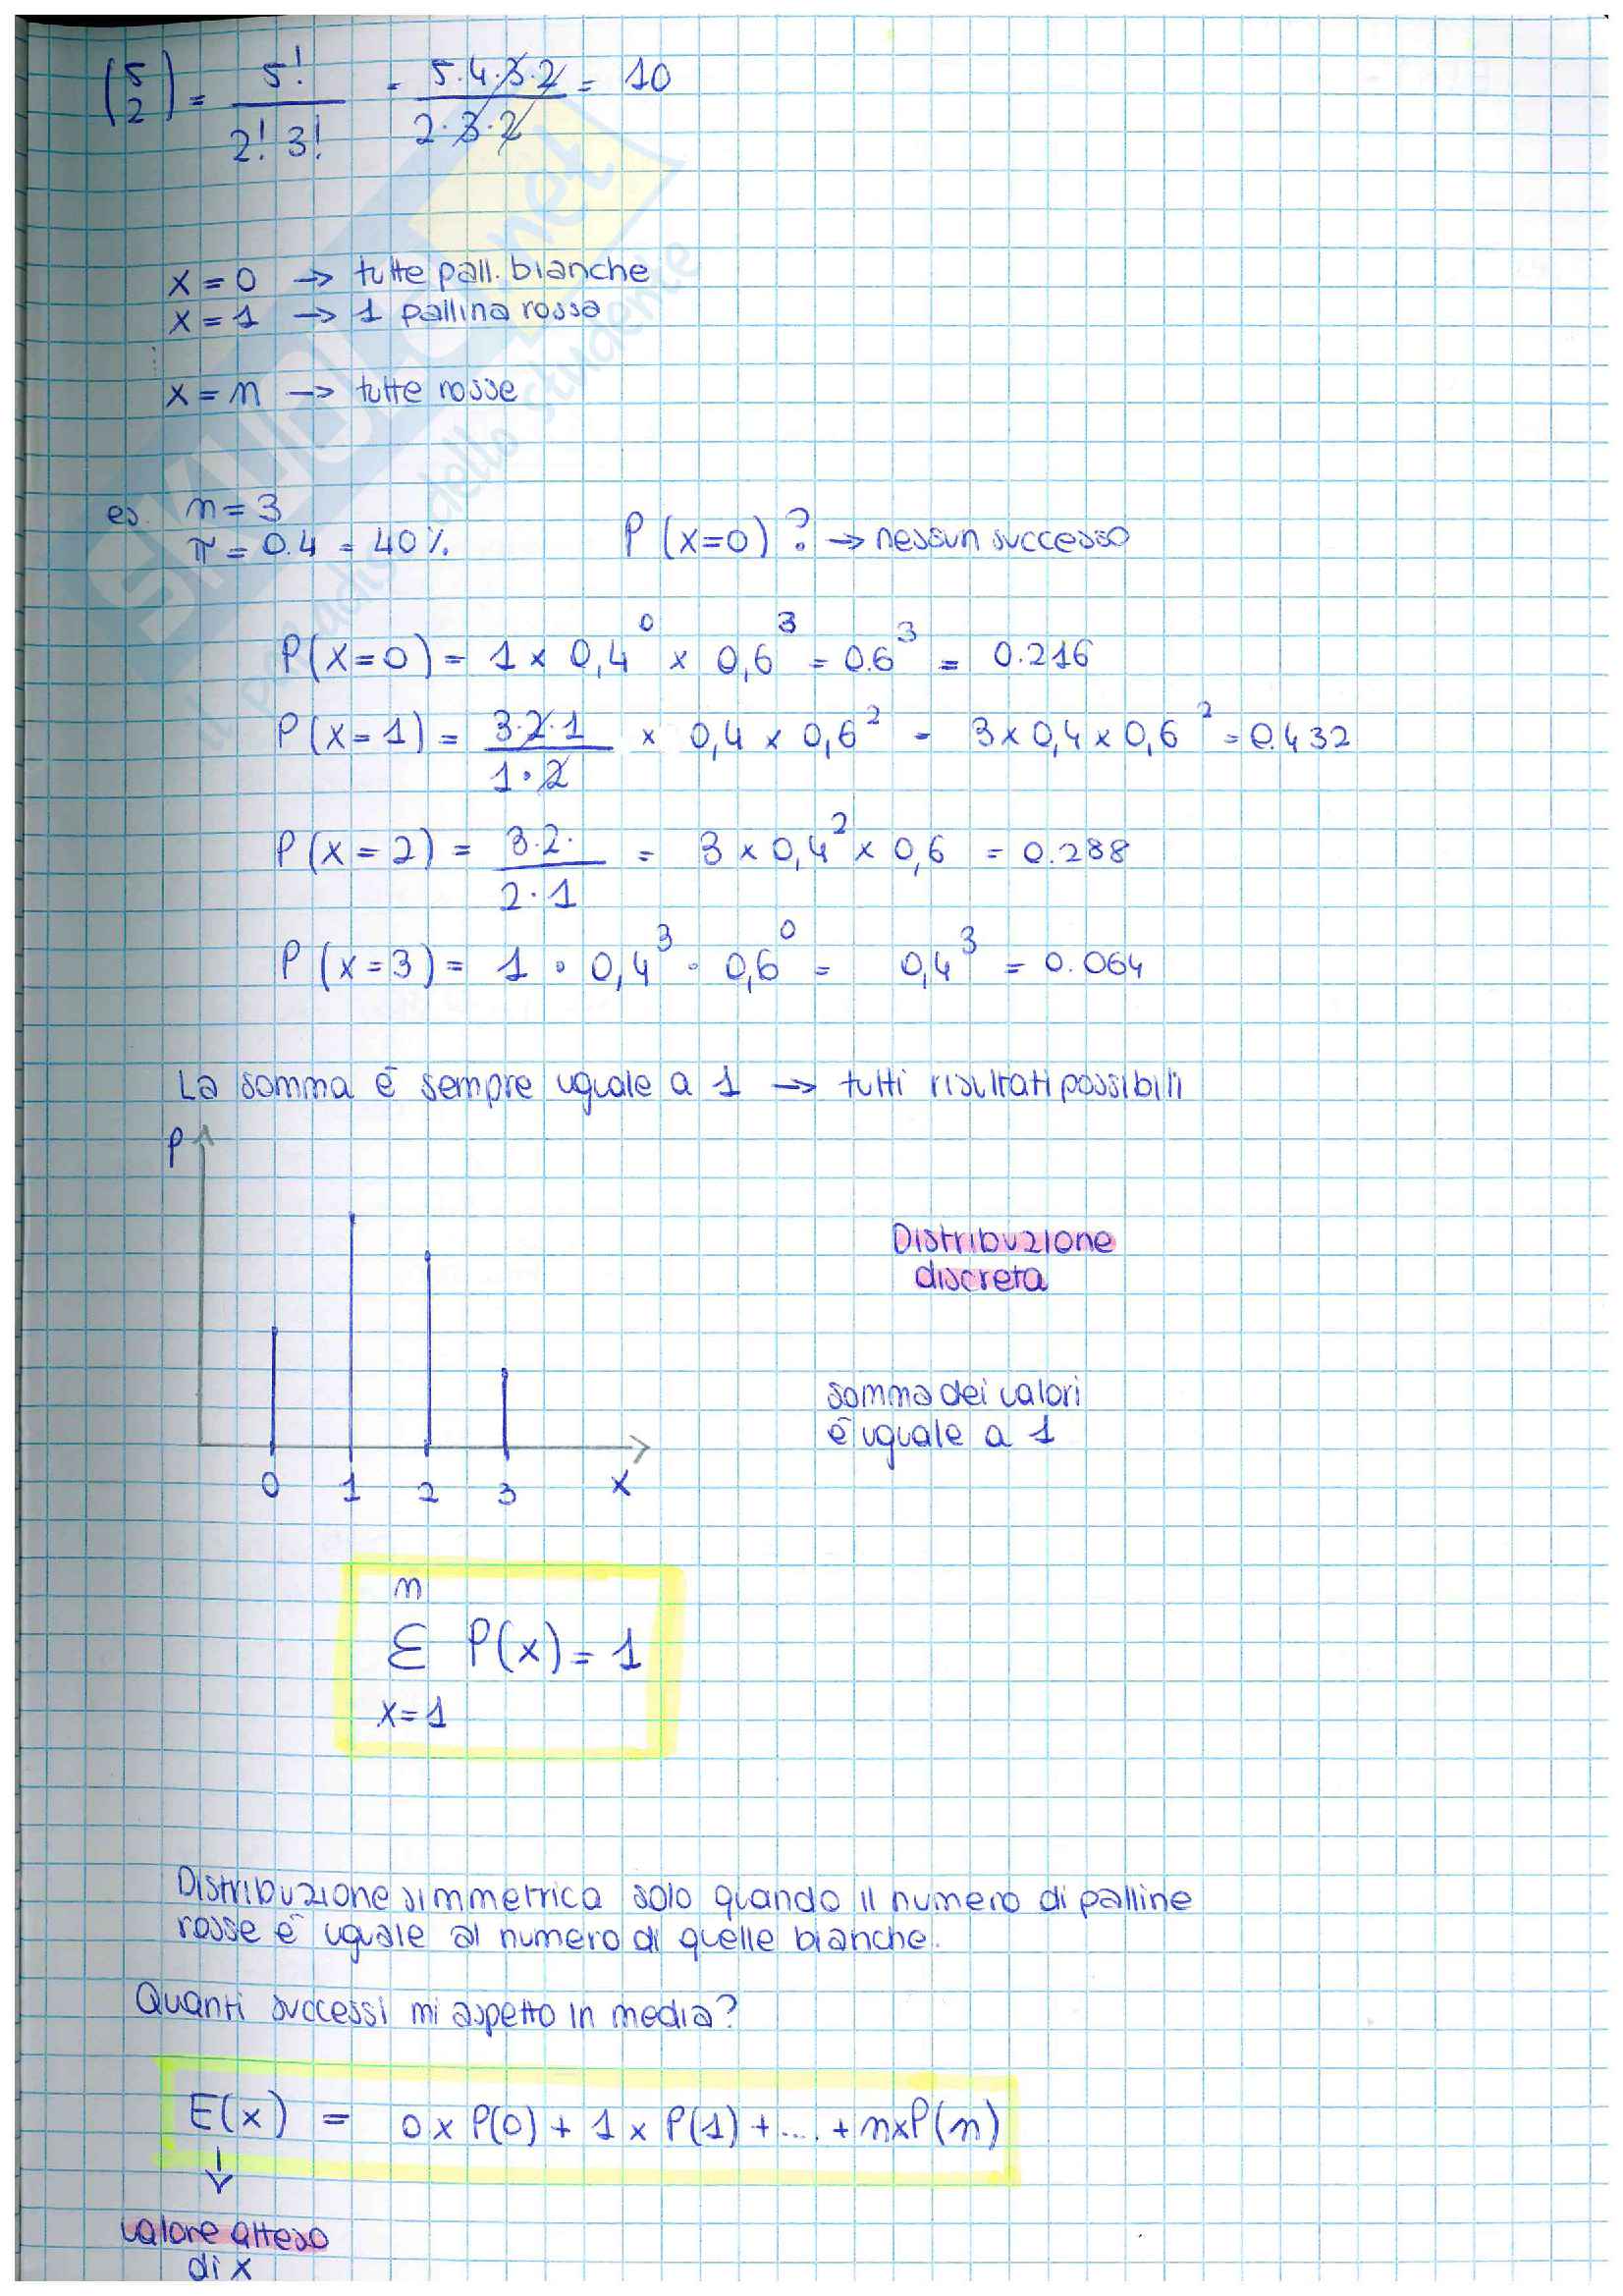 (5 2) = 5! / 2! 3! = 5·4·3·2 / 2·3·2 = 10
x = 0 → tutte pall. bianche
x = 1 → 1 pallina rossa
⋮
x = n → tutte rosse
es. n = 3
π = 0.4 = 40% P(x=0)? → nessun successo
P(x=0) = 1 x 0,4^0 x 0,6^3 = 0.6^3 = 0.216
P(x=1) = 3·2·1 / 1·2 x 0,4 x 0,6^2 = 3x0,4x0,6^2 = 0.432
P(x=2) = 3·2· / 2·1 = 3 x 0,4^2 x 0,6 = 0.288
P(x=3) = 1 · 0,4^3 · 0,6^0 = 0,4^3 = 0.064
La somma è sempre uguale a 1 → tutti risultati possibili
P
Distribuzione
discreta
somma dei valori
è uguale a 1
0 1 2 3 x
n
Σ P(x) = 1
x=1
Distribuzione simmetrica solo quando il numero di palline
rosse è uguale al numero di quelle bianche.
Quanti successi mi aspetto in media?
E(x) = 0 x P(0) + 1 x P(1) + ... + nxP(n)
↓
valore atteso
di x